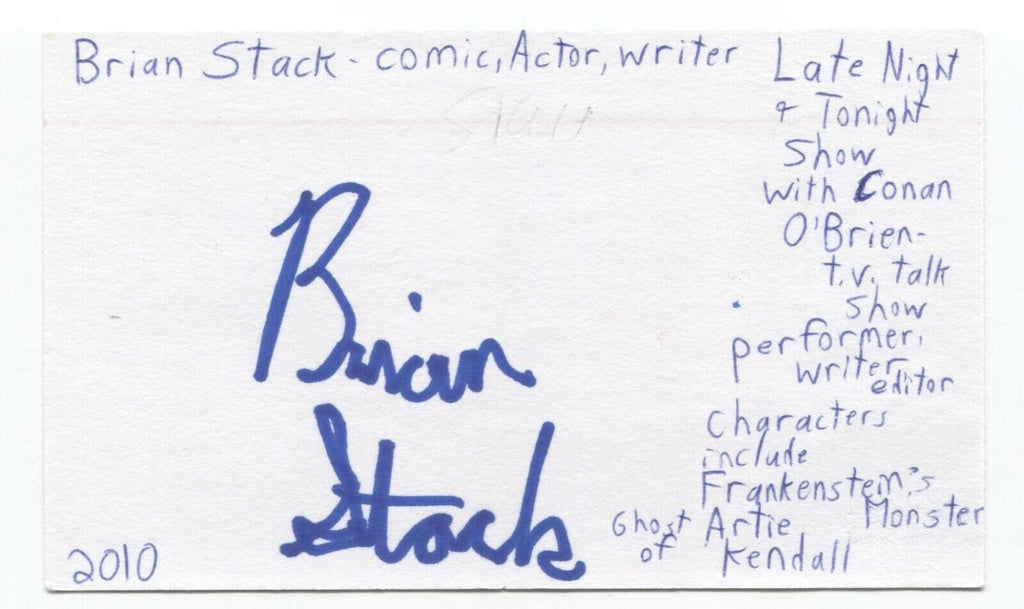 Brian Stack - comic, Actor, writer
Late Night
& Tonight
Show
with Conan
O'Brien-
t.v. talk
show
performer,
writer
editor
Characters
include
Frankenstein's
Monster
Ghost Artie
of Kendall
Brian
Stack
2010